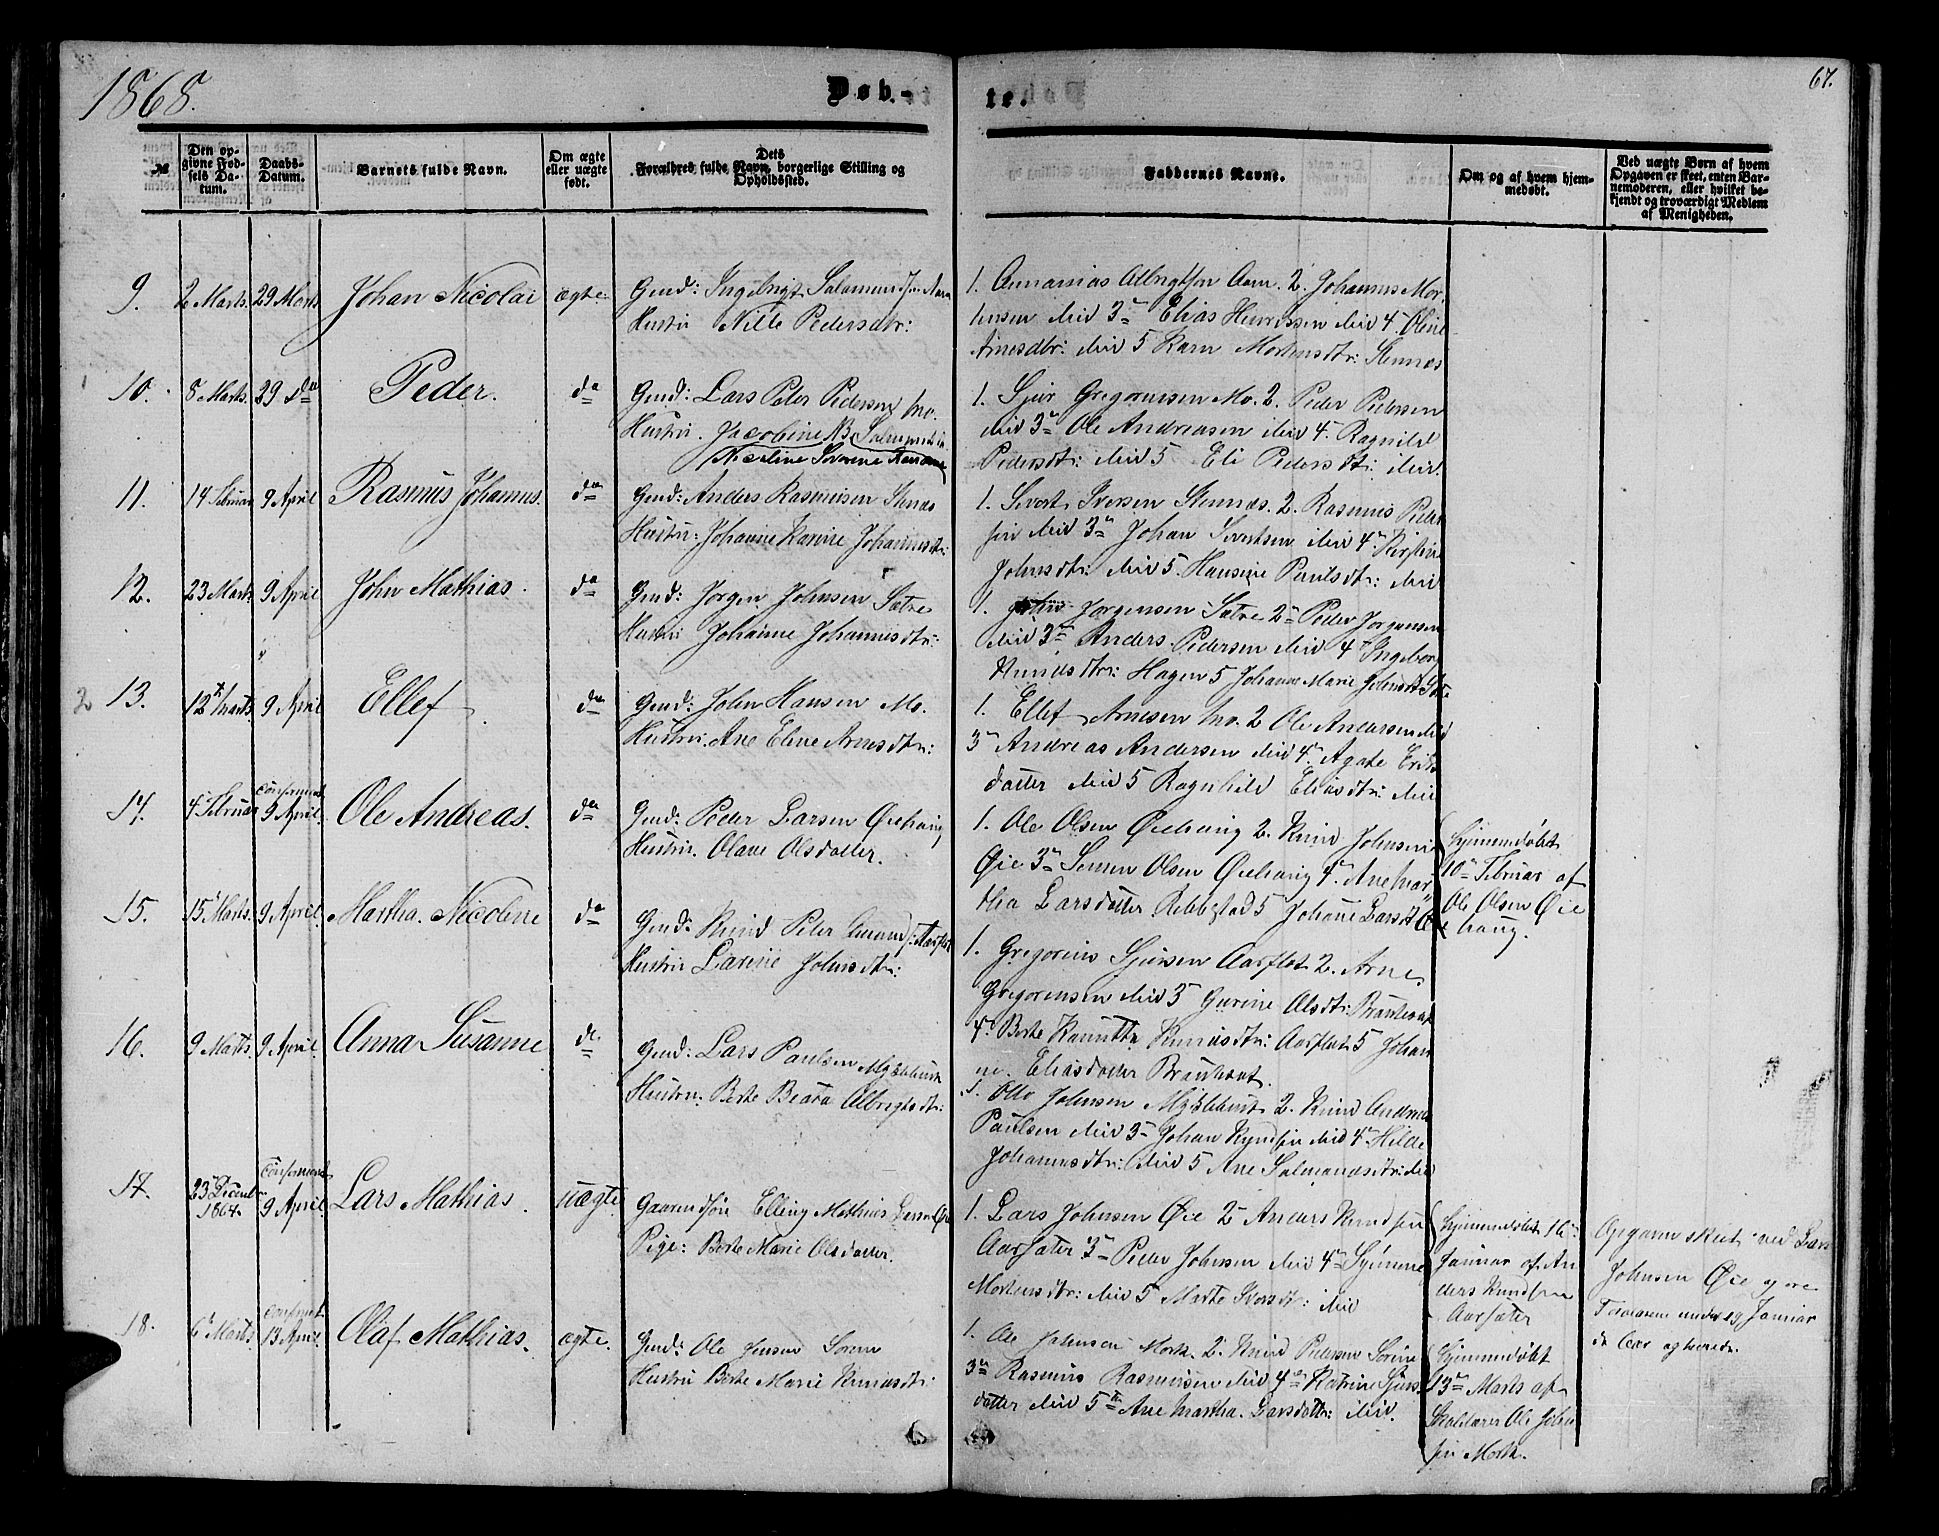 1868.
Døb-
te.
67.
№
Den opgivne Fødsels Datum.
Daabs-Datum.
Barnets fulde Navn.
Om ægte eller uægte født.
Dets Forældres fulde Navn, borgerlige Stilling og Opholdssted.
Faddernes Navne.
Om og af hvem hjemmedøbt.
Ved uægte Børn af hvem Opgaven er skeet, enten Barnemoderen, eller hvilket bekjendt og troværdigt Medlem af Menigheden.
9. 2 Marts. 29 Marts Johan Nicolai ægte
Gmd: Ingebrigt Salamons
Hustru Nille Pedersdtr:
1. Annanias Albrigtsøn Aam. 2. Johannes Mor-
tensen ibid 3 Elias Henriksen ibid 4. Oline
Arnesdtr: ibid 5 Karn Mortensdtr: Stennes
10. 8 Marts. 29 do Peder. do
Gmd: Lars Peter Pedersen Mo.
Hustru. Jacobine NB Salmonsdtr
Nicoline Severine
1. Sjur Gregoriussen Mo. 2. Peder Pedersen
ibid 3 Ole Andreasen ibid 4. Ragnild
Pedersdtr: ibid 5 Eli Pedersdtr: ibid.
11. 14 Februar 9 April Rasmus Johannes. do
Gmd: Anders Rasmusen Stenes
Hustru: Johanne Karine Johannesdtr:
1. Sivert Iversen Stennes. 2. Rasmus Peder
søn ibid 3 Johan Sivertsen ibid 4 Kirstine
Johnsdtr: ibid 5. Hansine Paulsdtr: ibid
12. 23 Marts 9 April John Mathias. do
Gmd: Jørgen Johnsen Sætre
Hustru Johanne Johannesdtr:
1. John Jørgensen Sætre 2 Peder Jørgensen
ibid 3 Anders Pedersen ibid 4 Ingeborg
Knudsdtr: Hagen 5 Johanne Marie Johnsdtr
2 13. 12 Marts 9 April Ellef do
Gmd: John Hansen Mo.
Hustru: Ane Eline Arnesdtr:
1. Ellef Arnesen Mo. 2 Ole Andersen ibid
3 Andreas Andersen ibid 4 Agate Eriks
datter ibid 5 Ragnhild Eliasdtr: ibid
14. 4 Februar Confirmeret 9 April. Ole Andreas. do
Gmd: Peder Larsen Øiehaug
Hustru. Olave Olsdatter.
1. Ole Olsen Øiehaug 2. Knud Johnsen
Øie 3 Olsen Øiehaug 4 Ane Mar
tha Larsdatter Rebbestad 5 Johane Larsdtr
Hjemmedøbt
10 Februar af
Ole Olsen Øie
haug.
15. 15 Marts. 9 April. Martha. Nicoline do
Gmd: Knud Peter Aarflot
Hustru Larine Johnsdtr:
1. Gregorius Sjursen Aarflot 2. Arne
Gregorensen ibid 3 Gurine Olsdtr:
4. Berte Knudsdtr: Aarflot 5 Johan
ne. Eliasdatter
16. 9 Marts. 9 April. Anna Susanne do
Gmd: Lars Paulsen Myklebust
Hustru: Berte Beata Albregtsdtr:
1. Otto Johnsen Myklebust 2. Knud Andreas
Paulsen ibid 3 Johan Knudsøn ibid 4 Hilde
Johannesdtr: ibid 5 Ane Salmonsdtr: ibid
17. 23 Decemb 1867. Confirmeret 9 April. Lars Mathias. uægte
Gaardmdsøn Elling Mathias Larsen Øie
Pige: Berte Marie Olsdatter.
1. Lars Johnsen Øie 2 Anders Knudsøn
Aarsæter 3 Peder Johnsen ibid 4
Mortensdtr: ibid 5 Marte Iversdtr: ibid
Hjemmedøbt 16
Januar af An
ders Knudsøn
Aarsæter
Opgaven skeet ved Lars
Johnsen Øie
under 19 Januar
18. 6 Marts. Confirmet 13 April. Olaf Mathias. ægte.
Gmd: Ole Jensen
Hustru Berte Marie Knudsdtr:
1. Ole Johnsen Mork 2. Knud Pedersen
3 Rasmus Rasmusen ibid 4 Katrine Sjurs
datter ibid 5 Ane Martha. Larsdatter: ibid.
Hjemmedøbt
13 Marts af
Skolelærer Ole John
søn Mork.